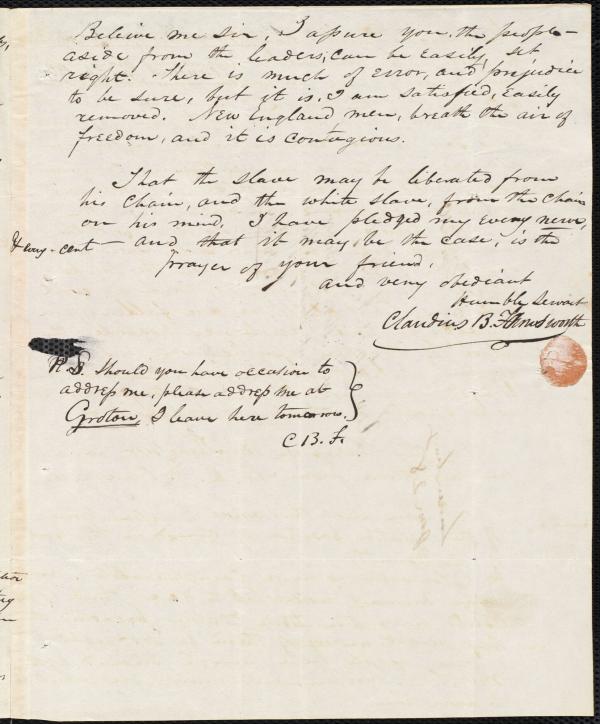 Beleive me sir, I assure you, the people—
aside from the leaders, can be easily set
right. There is much of error, and prejudice
to be sure, but it is, I am satisfied, easily
removed. New England men, breath the air of
freedom, and it is contagious.
That the slave may be liberated from
his chain, and the white slave, from the chain
on his mind, I have pledged my every nerve,
& every-cent— and that it may be the case, is the
prayer of your friend,
and very obediant
Humbly Servant
Claudius B. Farnsworth
P.S. Should you have occasion to
address me, please address me at
Groton, I leave here tomorrow.
C B. F.